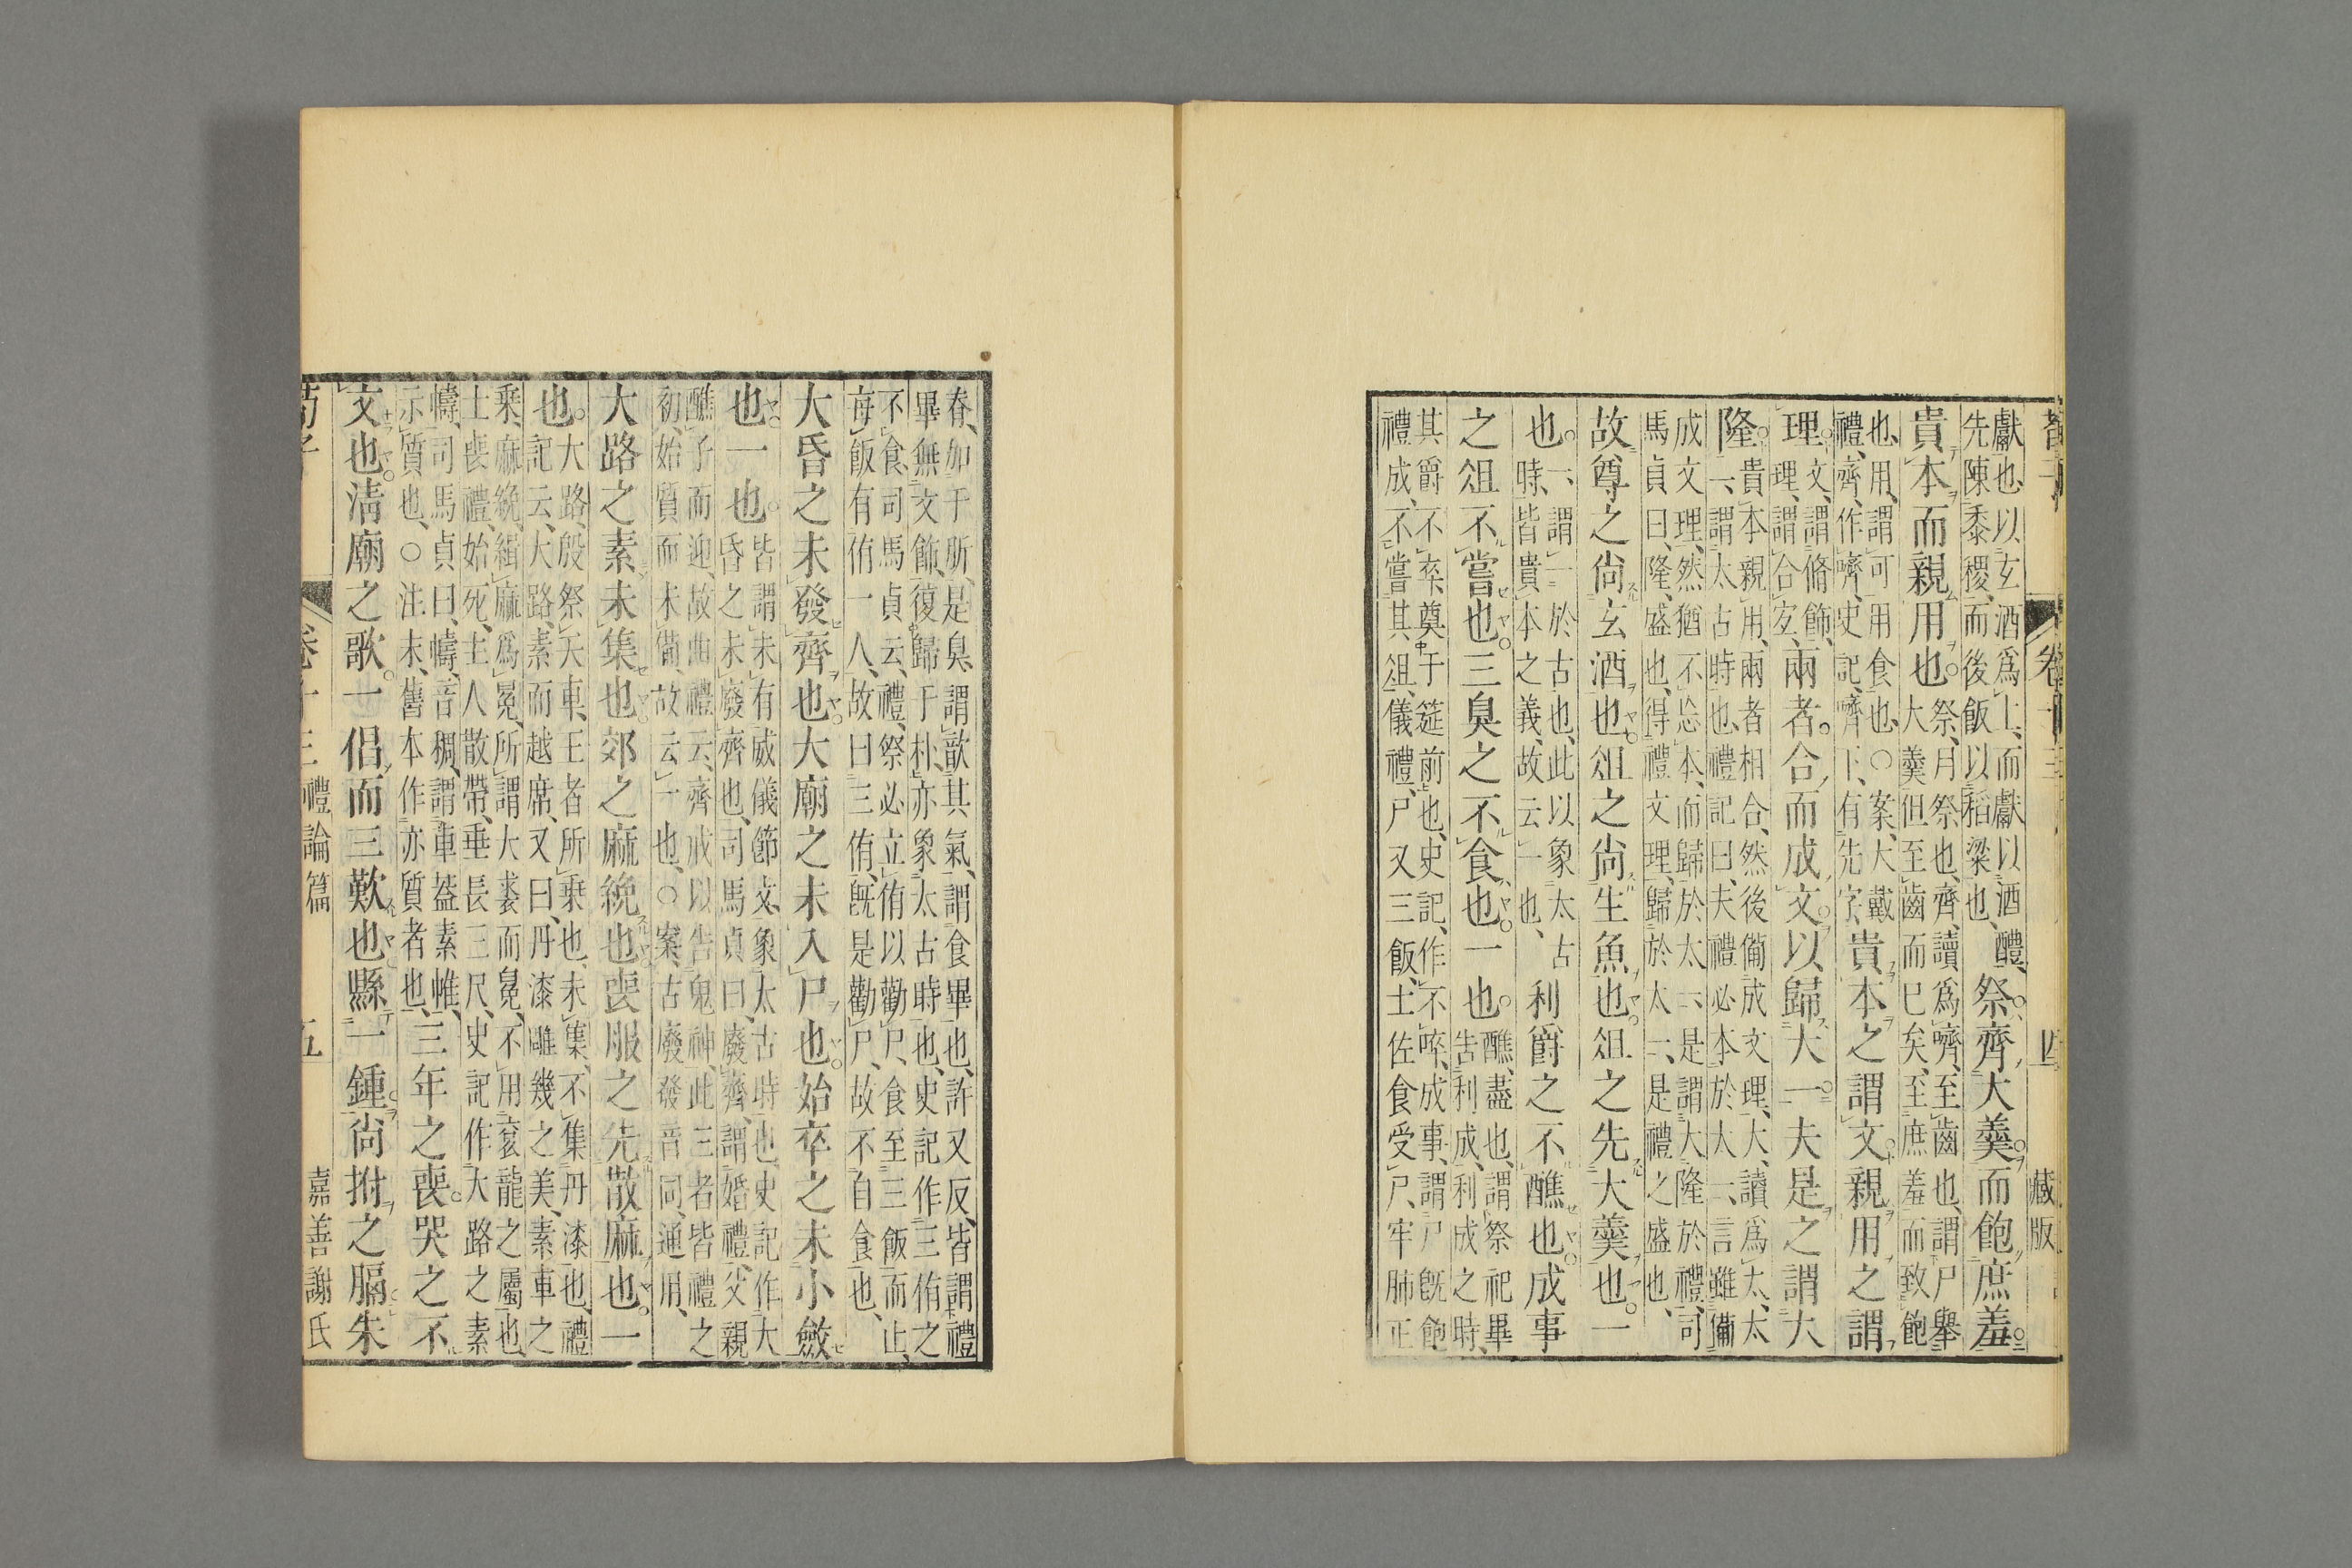 獻也、以玄酒爲上、而獻以酒醴、
先陳黍稷、而後飯以稻粱也、
祭齊大羹。而飽庶羞。
貴本而親用也。
祭、月祭也、齊、讀爲嚌、至齒也、謂尸舉
大羹但至齒而已矣、至庶羞而致飽
也、用、謂可用食也、○案、大戴
禮、齊、作嚌、史記、嚌下、有先字、
貴本之謂文親用之謂
理。
文、謂脩飾、
理、謂合宜、
兩者。合而成文。以歸大一。夫是之謂大
隆。
貴本親用、兩者相合、然後備成文理、大、讀爲太、太
一、謂太古時也、禮記曰、夫禮必本於太一、言雖備
成文理、然猶不忘本、而歸於太一、是謂大隆於禮、司
馬貞曰、隆、盛也、得禮文理、歸於太一、是禮之盛也、
故尊之尙玄酒也。俎之尙生魚也。俎之先大羹也。一
也。
一、謂一於古也、此以象太古
時、皆貴本之義、故云一也、
利爵之不醮也。成事
之俎不嘗也。三臭之不食也。一也。
醮、盡也、謂祭祀畢
告利成、利成之時、
其爵不卒、奠于筵前也、史記、作不啐、成事、謂尸旣飽
禮成、不嘗其俎、儀禮、尸又三飯、士佐食受尸牢肺正
荀子
卷十三
四
藏版
脊、加于肵、是臭、謂歆其氣、謂食畢也、許又反、皆謂禮
畢無文飾、復歸于朴、亦象太古時也、史記作三侑之
不食、司馬貞云、禮、祭必立侑以勸尸、食至三飯而止、
每飯有侑一人、故曰三侑、旣是勸尸、故不自食也、
大昏之未發齊也。大廟之未入尸也。始卒之未小斂
也。一也。
皆謂未有威儀節文、象太古時也、史記作大
昏之未廢齊也、司馬貞曰、廢齊、謂婚禮、父親
醮子而迎、故曲禮云、齊戒以告鬼神、此三者皆禮之
初、始質而未備、故云一也、○案、古廢發音同、通用、
大路之素未集也。郊之麻絻也。喪服之先散麻也。一
也。
大路、殷祭天車、王者所乘也、未集、不集丹漆也、禮
記云、大路、素而越席、又曰、丹漆雕幾之美、素車之
乘、麻絻、緝麻爲冕、所謂大裘而冕、不用衮龍之屬也、
士喪禮、始死、主人散帶、垂長三尺、史記作大路之素
幬、司馬貞曰、幬、音稠、謂車蓋素帷、
示質也、○注末、舊本作亦質者也、
三年之喪。哭之不
文也。淸廟之歌。一倡而三歎也。縣一鍾。尙拊之膈。朱
荀子
卷十三
禮論篇
五
嘉善謝氏